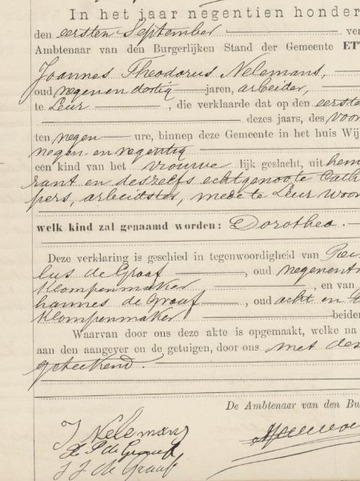 In het jaar negentien honder
den eersten September ver
Ambtenaar van den Burgerlijken Stand der Gemeente ET
Joannes Theodorus Nelemans,
oud negen en dertig jaren, arbeider,
te Leur, die verklaarde dat op den eerste
dezes jaars, des voor
ten negen ure, binnen deze Gemeente in het huis Wij
negen en negentig
een kind van het vrouwelijk geslacht, uit hem
rant en deszelfs echtgenoote Cath
pers, arbeidster, mede te Leur woon
welk kind zal genaamd worden: Dorothea.
Deze verklaring is geschied in tegenwoordigheid van
lus de Graaf, oud negenent
klompenmaker, en van
hannes de Graaf, oud acht en
klompenmaker beide
Waarvan door ons deze akte is opgemaakt, welke na
aan den aangever en de getuigen, door ons met de
geteekend.
De Ambtenaar van den Bu
J Nelemans
P de Graaf
J J de Graaf